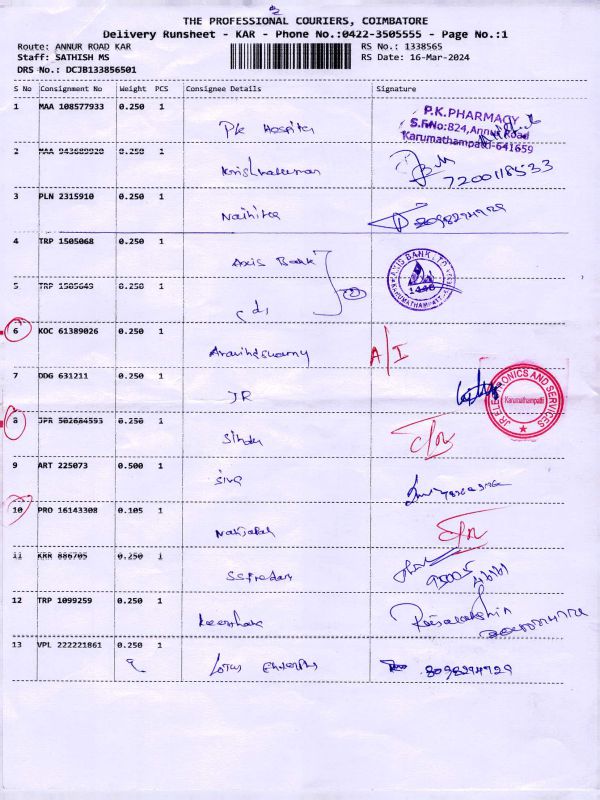 THE PROFESSIONAL COURIERS, COIMBATORE
Delivery Runsheet - KAR - Phone No.:0422-3505555 - Page No.:1
Route: ANNUR ROAD KAR
RS No.: 1338565
Staff: SATHISH MS
RS Date: 16-Mar-2024
DRS No.: DCJB133856501
S No Consignment No Weight PCS Consignee Details Signature
1 MAA 108577933 0.250 1
P.K.PHARMACY
S.F.No:824, Annur Road
Karumathampatti-641659
2 MAA 943689920 0.250 1
7200118533
3 PLN 2315910 0.250 1
8098294929
4 TRP 1505068 0.250 1
Axis Bank
AXIS BANK LTD
5 TRP 1505649 0.250 1
2
6 KOC 61389026 0.250 1
Aravindswamy
A/I
7 DDG 631211 0.250 1
JR
JR ELECTRONICS AND SERVICES
Karumathampatti
8 JPR 502684593 0.250 1
9 ART 225073 0.500 1
Siva
10 PRO 16143308 0.105 1
11 KRR 886705 0.250 1
12 TRP 1099259 0.250 1
13 VPL 222221861 0.250 1
Lotus
8098294929